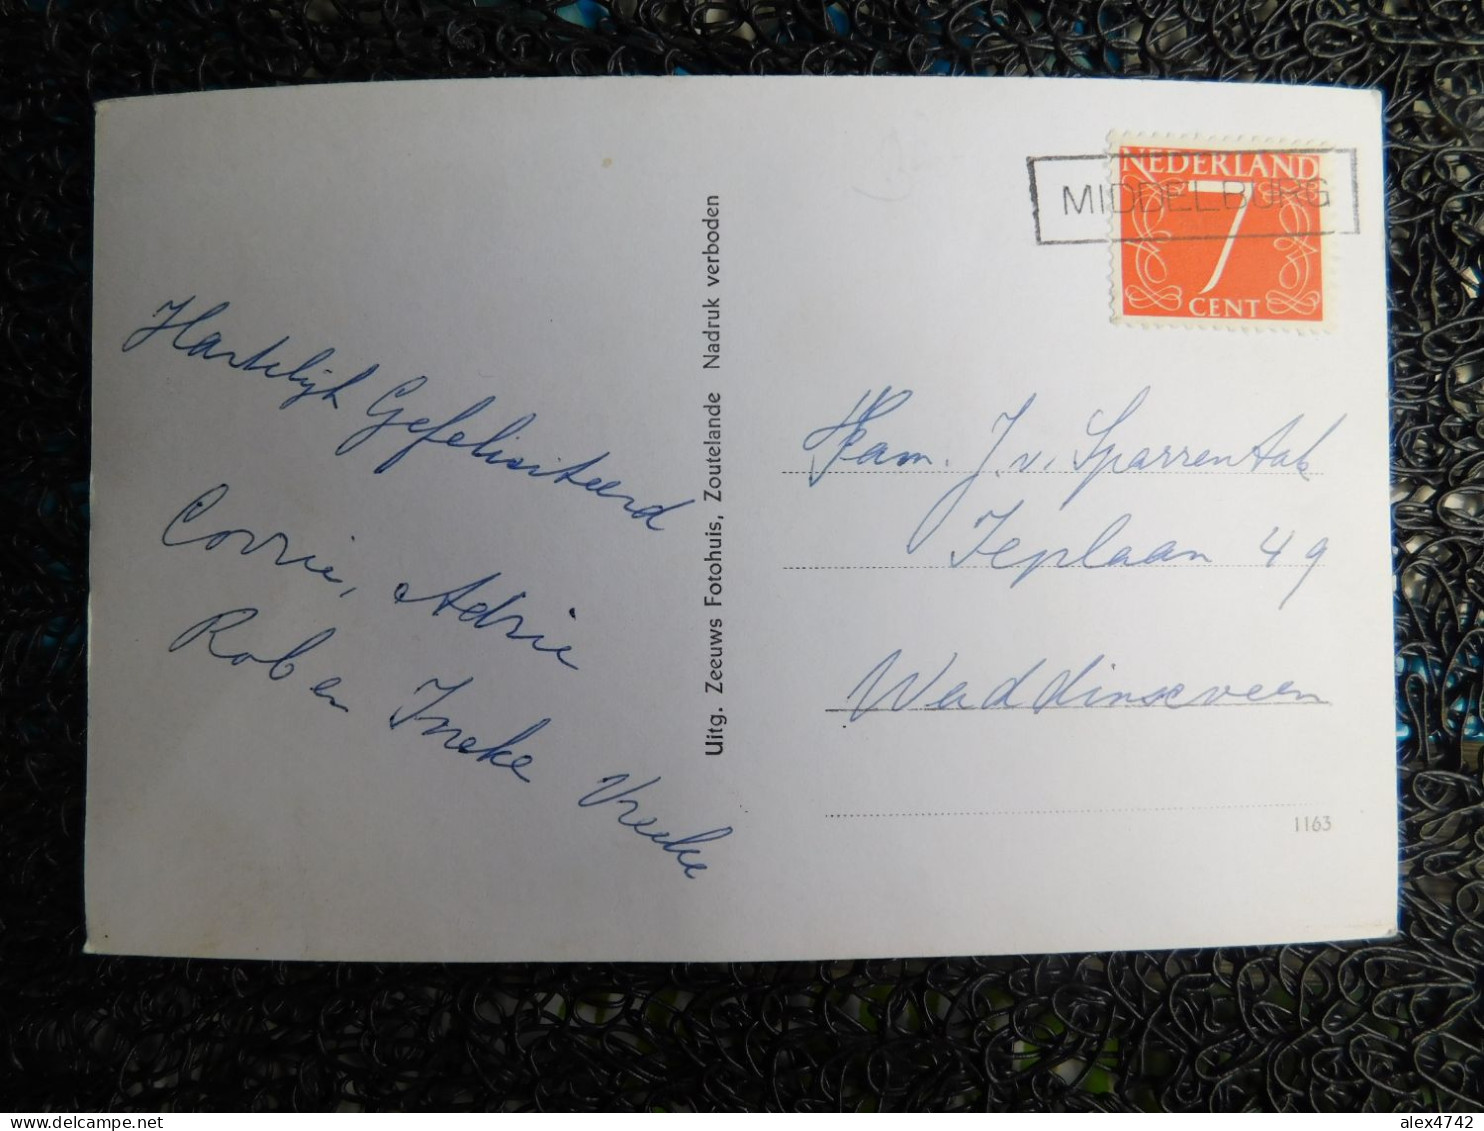 Hartelijk Gefelisiteerd
Corrie, Adrie
Rob en Ineke Vreeke
Uitg. Zeeuws Fotohuis, Zoutelande Nadruk verboden
NEDERLAND
7
CENT
MIDDELBURG
Fam. J. v. Sparrentak
Ieplaan 49
Waddinxveen
1163
alex4742